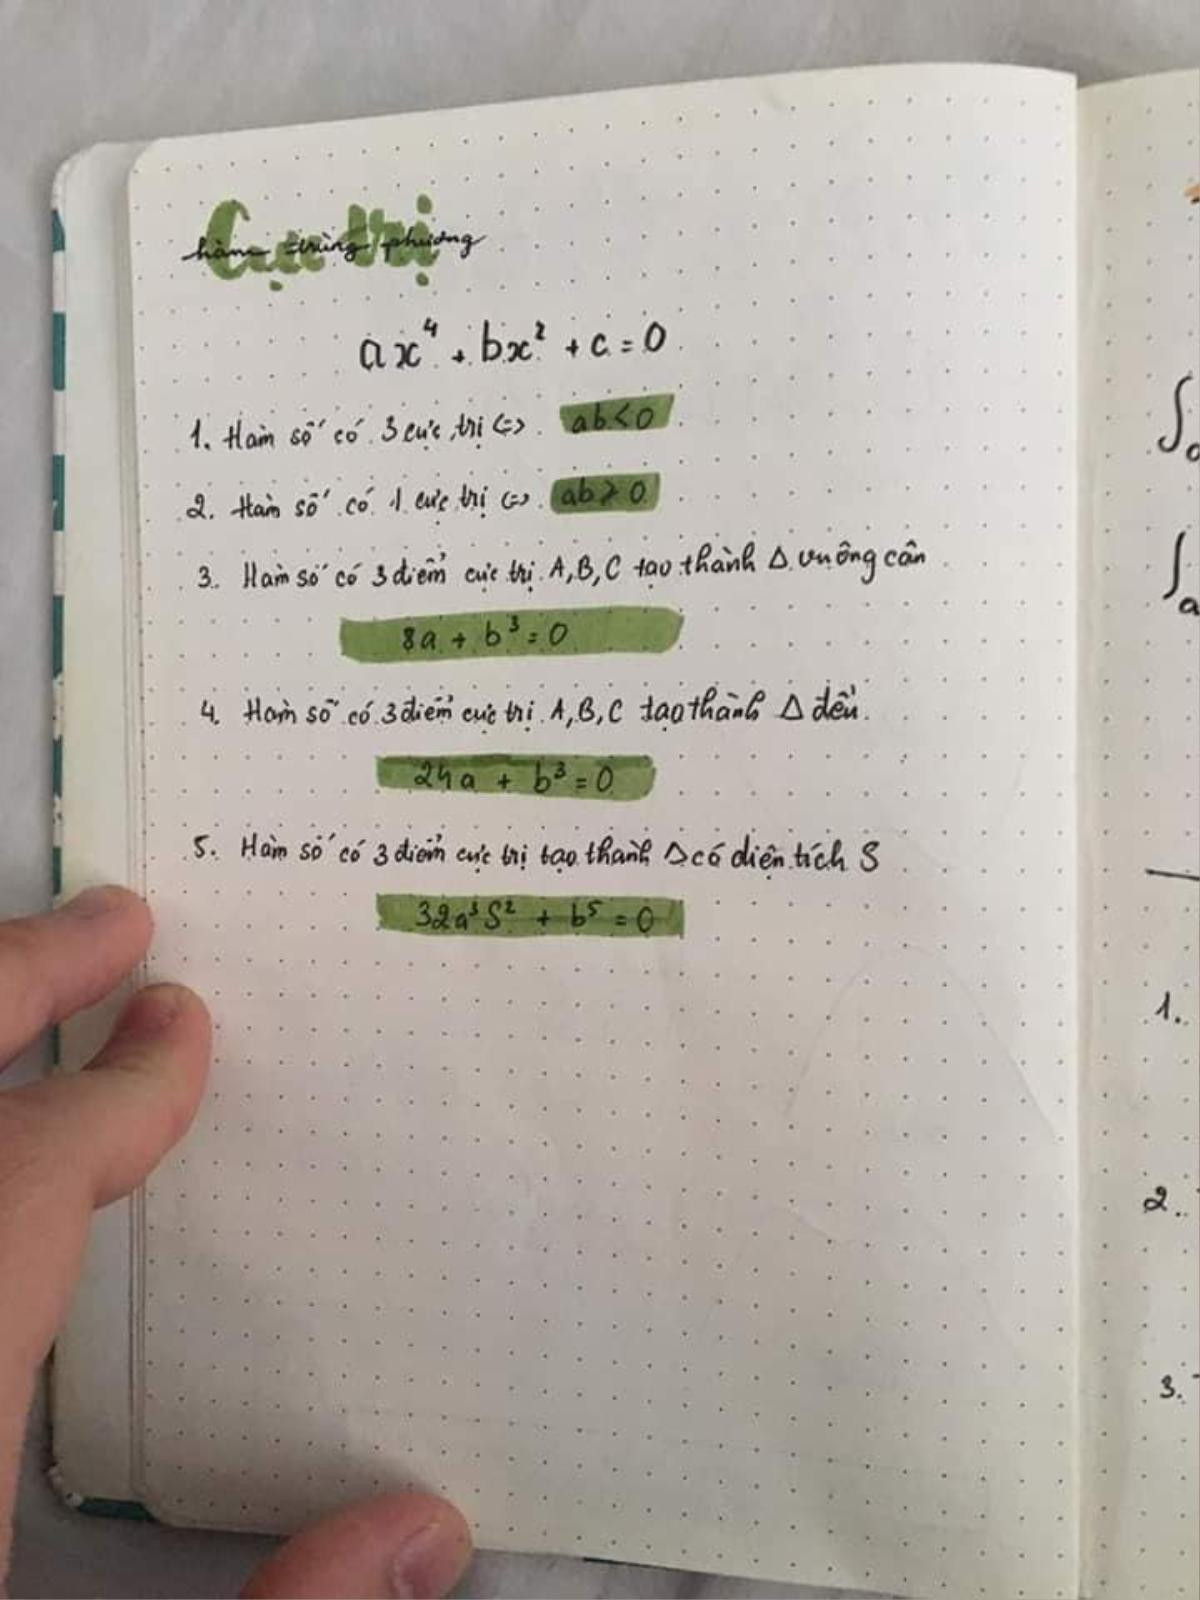 Cực trị
hàm trùng phương
ax⁴ + bx² + c = 0
1. Hàm số có 3 cực trị <=> ab < 0
2. Hàm số có 1 cực trị <=> ab ≥ 0
3. Hàm số có 3 điểm cực trị A, B, C tạo thành Δ vuông cân
8a + b³ = 0
4. Hàm số có 3 điểm cực trị A, B, C tạo thành Δ đều.
24a + b³ = 0
5. Hàm số có 3 điểm cực trị tạo thành Δ có diện tích S
32a³S² + b⁵ = 0
∫
∫a
1.
2.
3.